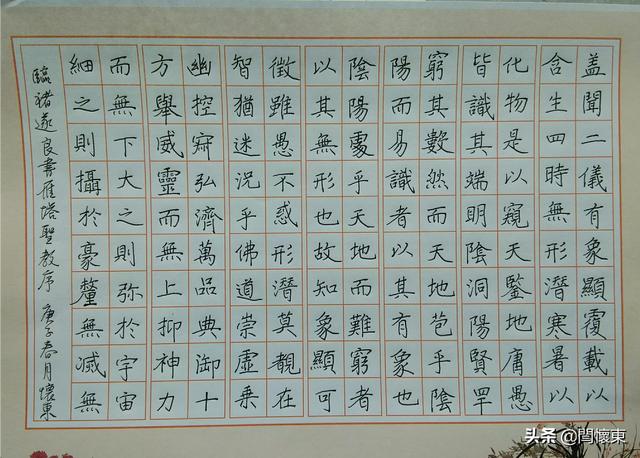 盖聞二儀有象顯覆載以
含生四時無形潛寒暑以
化物是以窺天鑒地庸愚
皆識其端明陰洞陽賢罕
窮其數然而天地苞乎陰
陽而易識者以其有象也
陰陽處乎天地而難窮者
以其無形也故知象顯可
徵雖愚不惑形潛莫覩在
智猶迷況乎佛道崇虛乘
幽控寂弘濟萬品典御十
方舉威靈而無上抑神力
而無下大之則弥於宇宙
細之則攝於豪釐無滅無
臨褚遂良書雁塔聖教序 庚子春月懷東
头条 @閆懷東